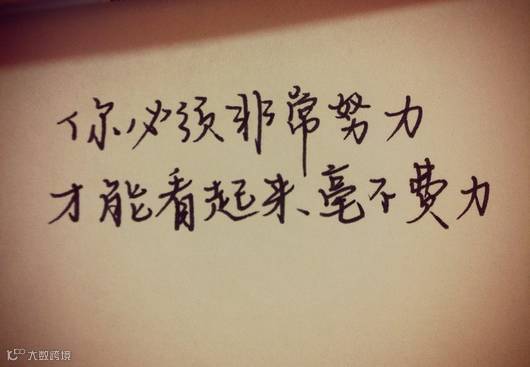 你必须非常努力
才能看起来、毫不费力
大数跨境